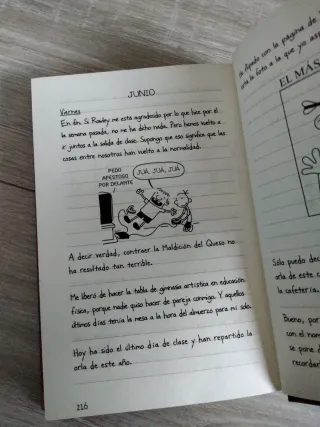 JUNIO
Viernes
En fin. Si Rowley me está agradecido por lo que hice por él
la semana pasada, no me ha dicho nada. Pero hemos vuelto a
ir juntos a la salida de clase. Supongo que eso significa que las
cosas entre nosotros han vuelto a la normalidad.
PEDO
APESTOSO
POR DELANTE
JUÁ, JUÁ, JUÁ
A decir verdad, contraer la Maldición del Queso no
ha resultado tan terrible.
Me liberó de hacer la tabla de gimnasia artística en educación
física, porque nadie quiso hacer de pareja conmigo. Y aquellos
últimos días tenía la mesa a la hora del almuerzo para mí solo.
Hoy ha sido el último día de clase y han repartido la
orla de este año.
216
con la página de
una la foto a la que yo
EL MÁS
Sólo puedo deci
orla de este
la cafetería.
Bueno, por
con el nom
se pone d
recordar